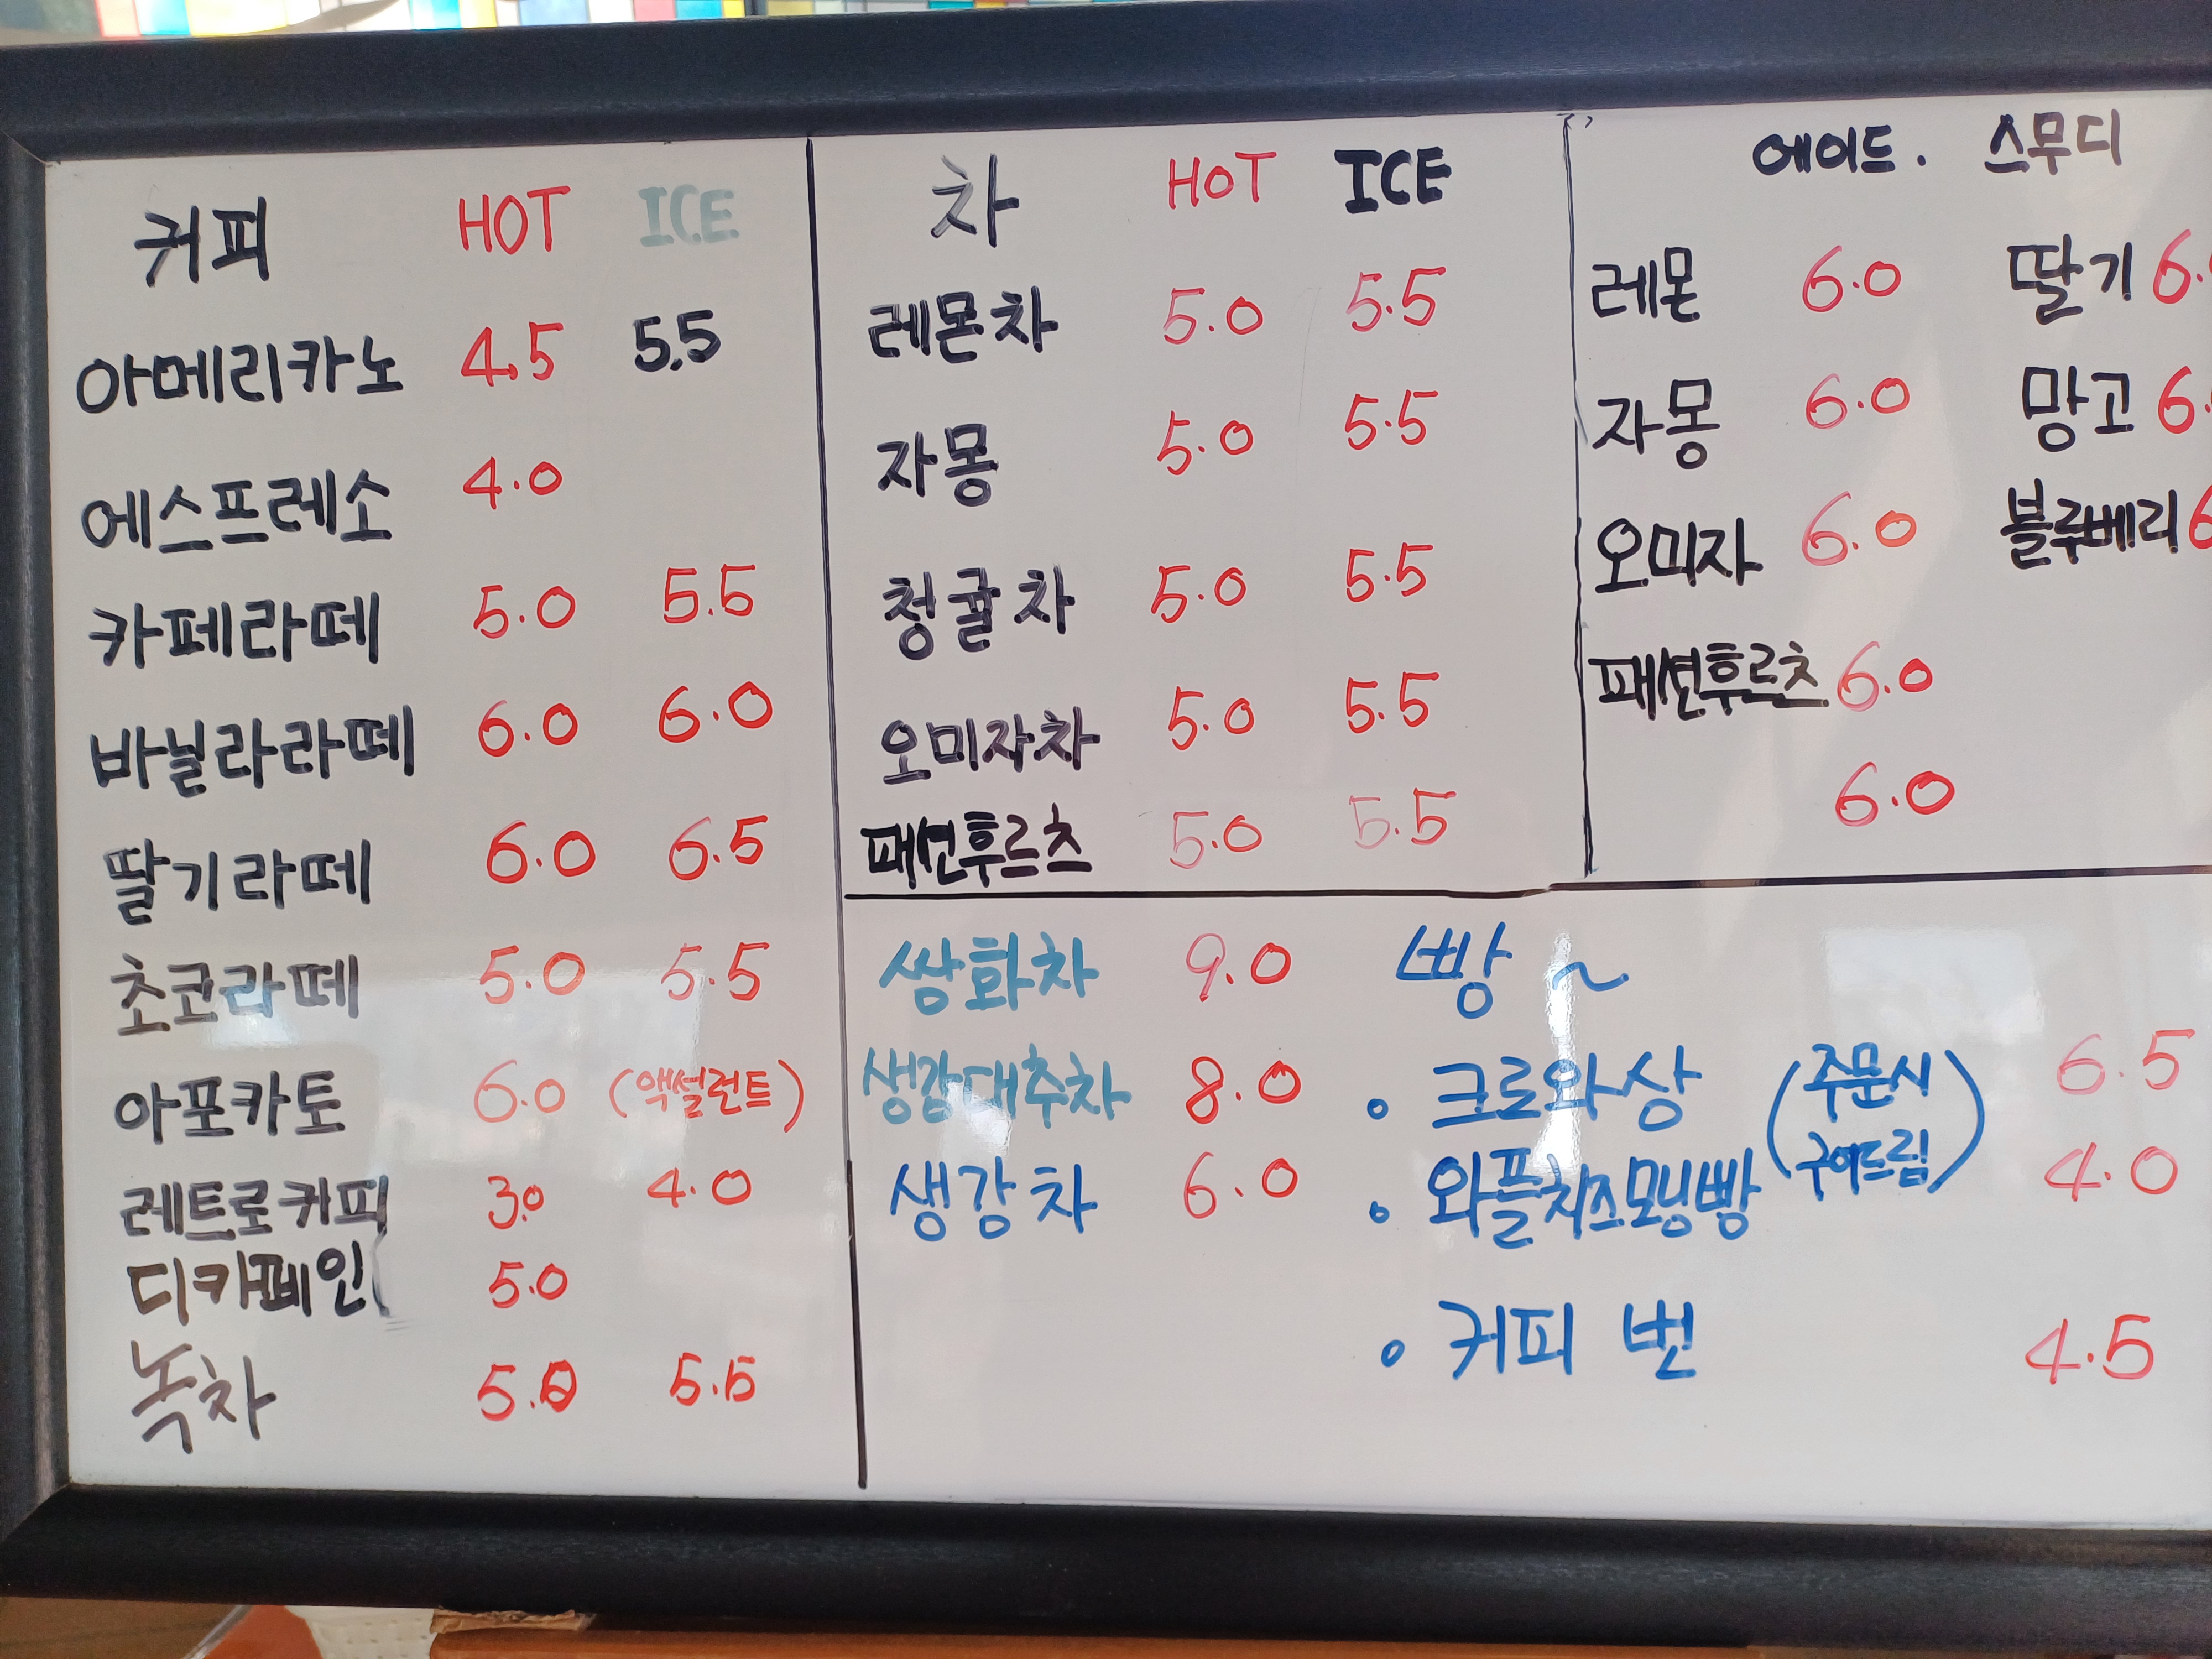 커피 HOT ICE
아메리카노 4.5 5.5
에스프레소 4.0
카페라떼 5.0 5.5
바닐라라떼 6.0 6.0
딸기라떼 6.0 6.5
초코라떼 5.0 5.5
아포카토 6.0 (액설런트)
레트로커피 3.0 4.0
디카페인 5.0
녹차 5.0 5.5
차 HOT ICE
레몬차 5.0 5.5
자몽 5.0 5.5
청귤차 5.0 5.5
오미자차 5.0 5.5
패션후르츠 5.0 5.5
에이드. 스무디
레몬 6.0 딸기 6.
자몽 6.0 망고 6.
오미자 6.0 블루베리 6
패션후르츠 6.0
6.0
쌍화차 9.0
생강대추차 8.0
생강차 6.0
빵~
• 크로와상 (주문시 구어드림) 6.5
• 와플치즈모닝빵 4.0
• 커피 번 4.5